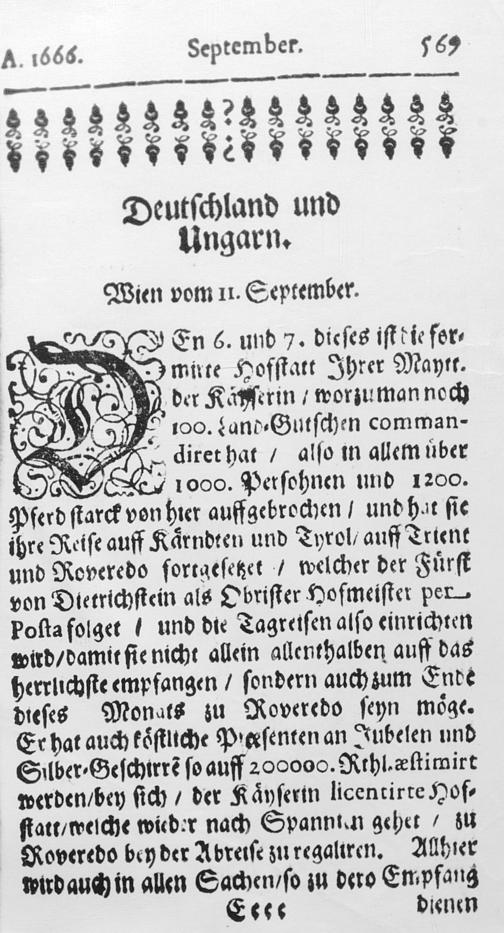 A. 1666. September. 569
Deutschland und
Ungarn.
Wien vom 11. September.
DEn 6. und 7. dieses ist die for-
mirte Hofstatt Ihrer Maytt.
der Käyserin / worzu man noch
100. Land-Gutschen comman-
diret hat / also in allem über
1000. Persohnen und 1200.
Pferd starck von hier auffgebrochen / und hat sie
ihre Reise auff Kärndten und Tyrol / auff Trient
und Roveredo fortgesetzet / welcher der Fürst
von Dietrichstein als Obrister Hofmeister per
Posta folget / und die Tagreisen also einrichten
wird / damit sie nicht allein allenthalben auff das
herrlichste empfangen / sondern auch zum Ende
dieses Monats zu Roveredo seyn möge.
Er hat auch köstliche Præsenten an Jubelen und
Silber-Geschirrẽ so auff 200000. Rthl. æstimirt
werden / bey sich / der Käyserin licentirte Hof-
statt / welche wieder nach Spannien gehet / zu
Roveredo bey der Abreise zu regaliren. Allhier
wird auch in allen Sachen / so zu dero Empfang
Eeee dienen